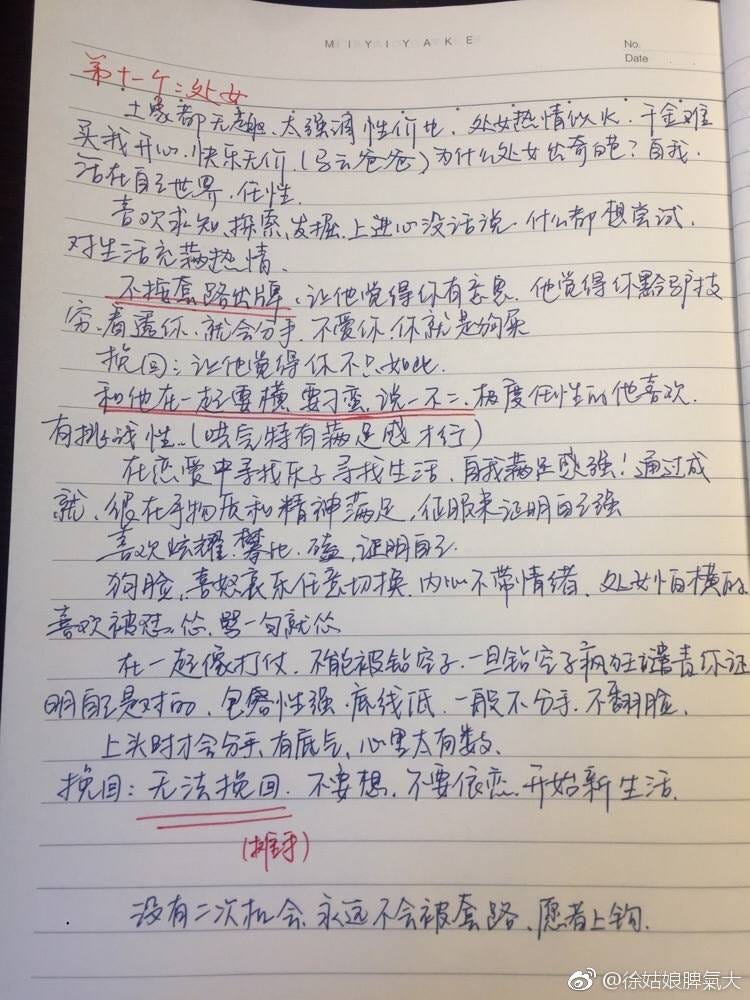 MIYIYAKE
No.
Date
第十一个:处女
土象都无趣、太强调性价比,处女热情似火,千金难
买我开心,快乐无价,(马云爸爸)为什么处女出奇葩?自我.
活在自己世界,任性.
喜欢求知、探索、发掘,上进心没话说,什么都想尝试,
对生活充满热情、
不按套路出牌、让他觉得你有意思、他觉得你黔驴技
穷、看透你、就会分手,不爱你、你就是狗屎
挽回:让他觉得你不只如此.
和他在一起要横,要刁蛮,说一不二,极度任性的他喜欢.
有挑战性..(哄完特有满足感才行)
在恋爱中寻找乐子寻找生活,自我满足感强!通过成
就、很在乎物质和精神满足,征服来证明自己强
喜欢炫耀、攀比,磕,证明自己.
狗脸,喜怒哀乐任意切换,内心不带情绪,处女怕横的
喜欢被怼、怂,骂一句就怂
在一起像打仗,不能被钻空子,一旦钻空子疯狂谴责你证
明自己是对的、包容性强,底线低,一般不分手,不翻脸,
上头时才会分手,有底气,心里太有数.
挽回:无法挽回,不要想,不要依恋,开始新生活.
没有二次机会,永远不会被套路、愿者上钩.
@徐姑娘脾氣大